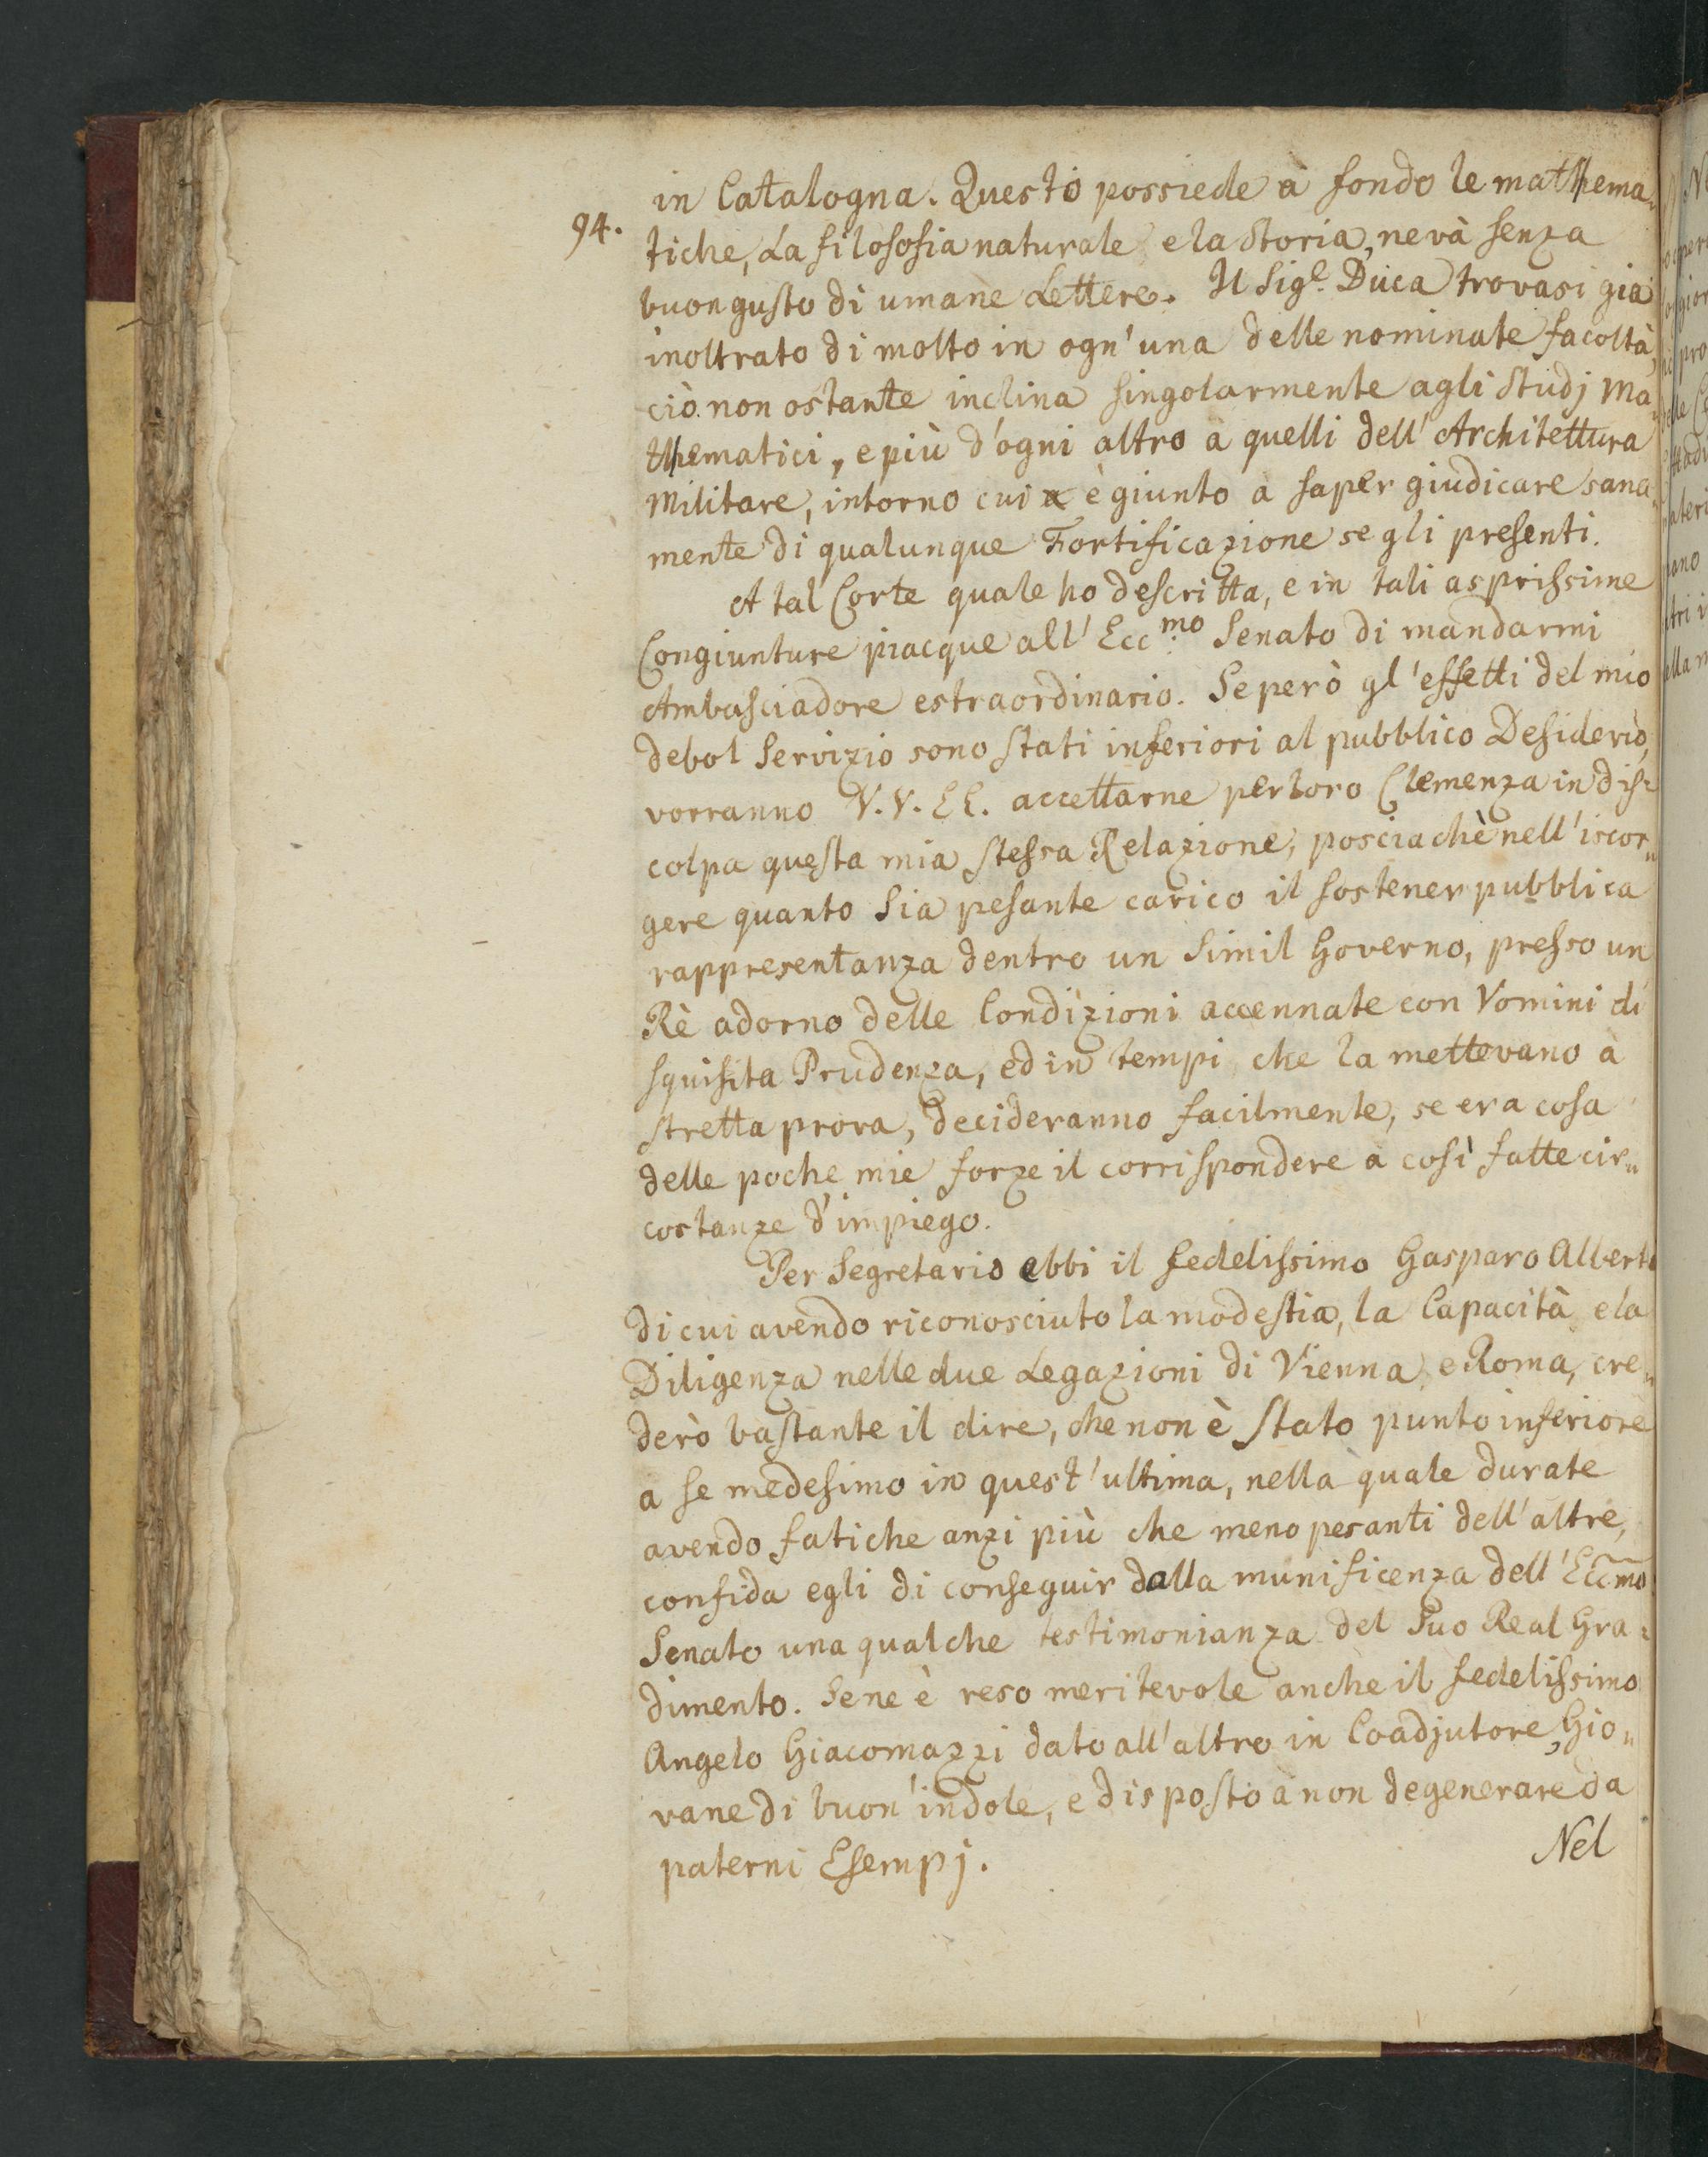 94.
in Catalogna. Questo possiede à fondo le mathema-
tiche, La filosofia naturale, e la Storia, ne và senza
buon gusto di umane Lettere. Il Sig.e Duca trovasi già
inoltrato di molto in ogn'una delle nominate facoltà,
ciò non ostante inclina singolarmente agli Studj Ma-
thematici, e più d'ogni altro à quelli dell'Architettura
Militare, intorno cui è giunto à saper giudicare sana-
mente di qualunque Fortificazione se gli presenti.
A tal Corte quale ho descritta, e in tali asprissime
Congiunture piacque all'Ecc.mo Senato di mandarmi
Ambasciadore estraordinario. Se però gl'effetti del mio
debol Servizio sono stati inferiori al pubblico Desiderio,
vorranno V.V. EE. accettarne per loro Clemenza in dis-
colpa questa mia stessa Relazione, posciachè nell'iscor-
gere quanto sia pesante carico il sostener pubblica
rappresentanza dentro un simil Governo, presso un
Rè adorno delle Condizioni accennate con Vomini di
squisita Prudenza, ed in tempi che la mettevano à
stretta prova, decideranno facilmente, se era cosa
delle poche mie forze il corrispondere à così fatte cir-
costanze d'impiego.
Per Segretario ebbi il fedelissimo Gasparo Alberti
di cui avendo riconosciuto la modestia, la Capacità, e la
Diligenza nelle due Legazioni di Vienna, e Roma, cre-
derò bastante il dire, che non è stato punto inferiore
à se medesimo in quest'ultima, nella quale durate
avendo fatiche anzi più che meno pesanti dell'altre,
confida egli di conseguir dalla munificenza dell'Eccmo
Senato una qualche testimonianza del Suo Real Gra-
dimento. Se ne è reso meritevole anche il fedelissimo
Angelo Giacomazzi dato all'altro in Coadjutore, Gio-
vane di buon'indole, e disposto à non degenerare da
paterni Esempj.
Nel